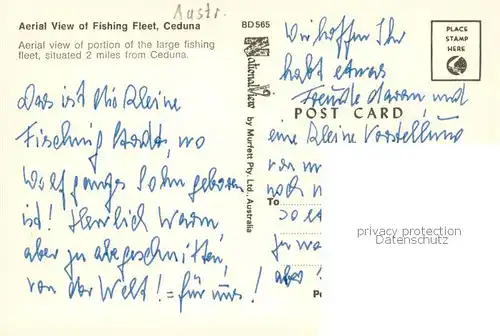 Austr.
Aerial View of Fishing Fleet, Ceduna
BD565
Aerial view of portion of the large fishing
fleet, situated 2 miles from Ceduna.
PLACE
STAMP
HERE
NationalView
by Murfett Pty. Ltd., Australia
POST CARD
To
Das ist die kleine
Fisching Stadt, wo
Wolfgangs Sohn geboren
ist! Herrlich warm
aber zu abgeschnitten,
von der Welt! = für uns!
Wir hoffen Ihr
habt etwas
Freude daran und
eine kleine Vorstellung
von
noch
so
aber
privacy protection
Datenschutz